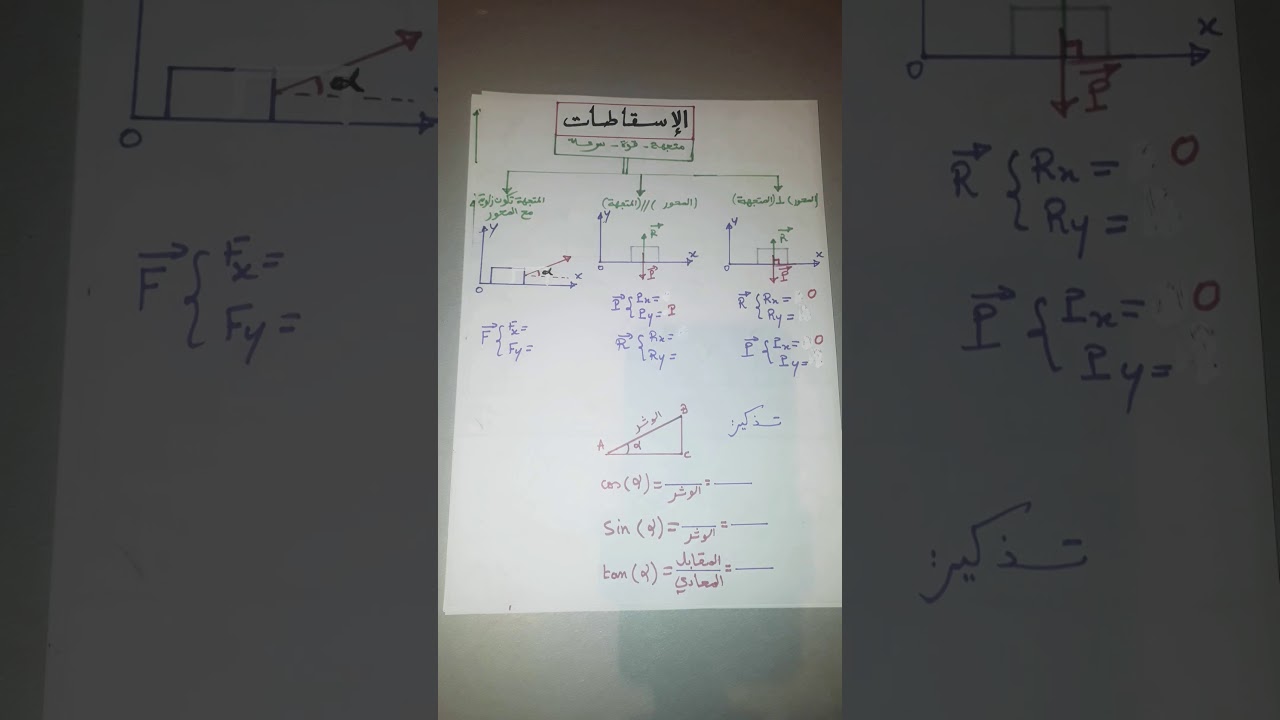 الإسقاطات
متجهة - قوة - سرعة
(المحور) ⊥ (المتجهة)
(المحور) // (المتجهة)
المتجهة تكون زاوية
مع المحور
y
R
x
O
P
R { Rx = 0
Ry =
P { Px = 0
Py =
y
R
x
O
P
P { Px =
Py = P
R { Rx =
Ry =
y
α
x
O
F { Fx =
Fy =
تذكير:
B
الوتر
A
α
C
cos(α) = ــ/الوتر = ــ
sin(α) = ــ/الوتر = ــ
tan(α) = المقابل/المحادي = ــ